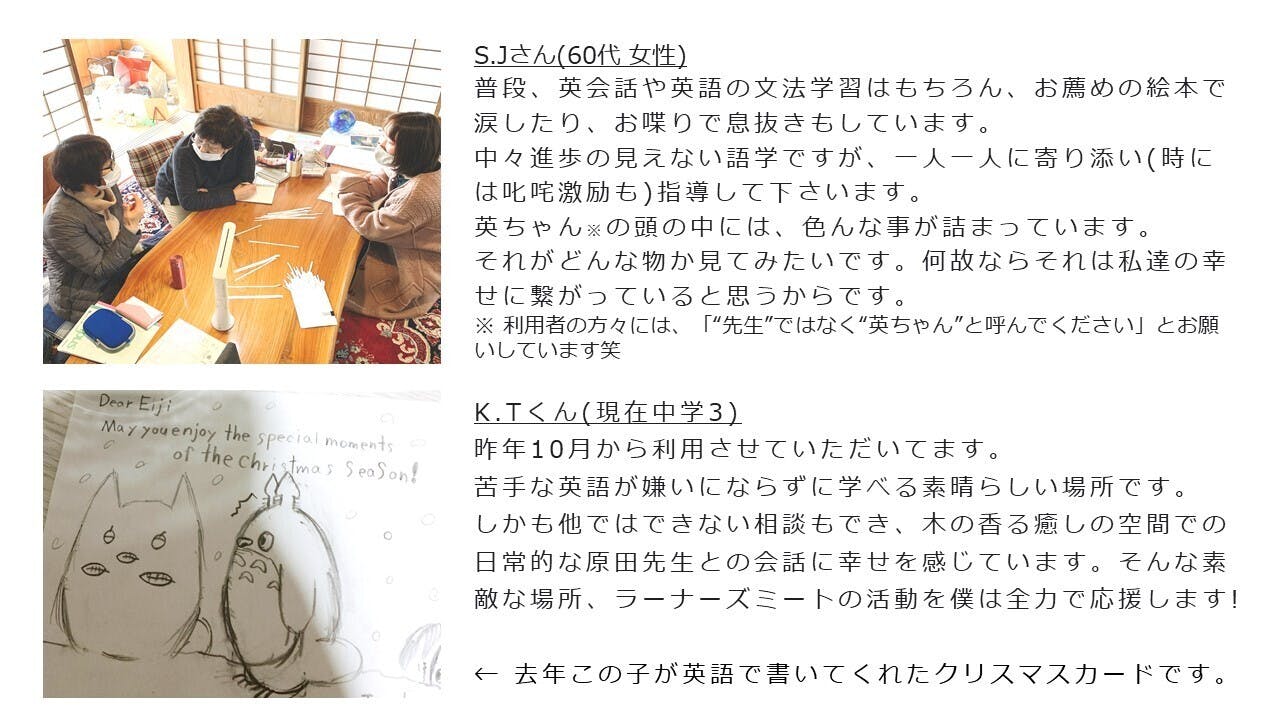 S.Jさん(60代 女性)
普段、英会話や英語の文法学習はもちろん、お薦めの絵本で
涙したり、お喋りで息抜きもしています。
中々進歩の見えない語学ですが、一人一人に寄り添い(時に
は叱咤激励も)指導して下さいます。
英ちゃん※の頭の中には、色んな事が詰まっています。
それがどんな物か見てみたいです。何故ならそれは私達の幸
せに繋がっていると思うからです。
※ 利用者の方々には、「“先生”ではなく“英ちゃん”と呼んでください」とお願
いしています笑
Dear Eiji
May you enjoy the special moments
of the christmas Season!
K.Tくん(現在中学3)
昨年10月から利用させていただいてます。
苦手な英語が嫌いにならずに学べる素晴らしい場所です。
しかも他ではできない相談もでき、木の香る癒しの空間での
日常的な原田先生との会話に幸せを感じています。そんな素
敵な場所、ラーナーズミートの活動を僕は全力で応援します!
← 去年この子が英語で書いてくれたクリスマスカードです。